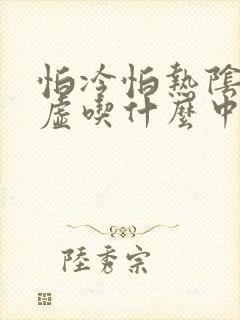 怕冷怕熱陰
虛喫什麼中
陸秀宗